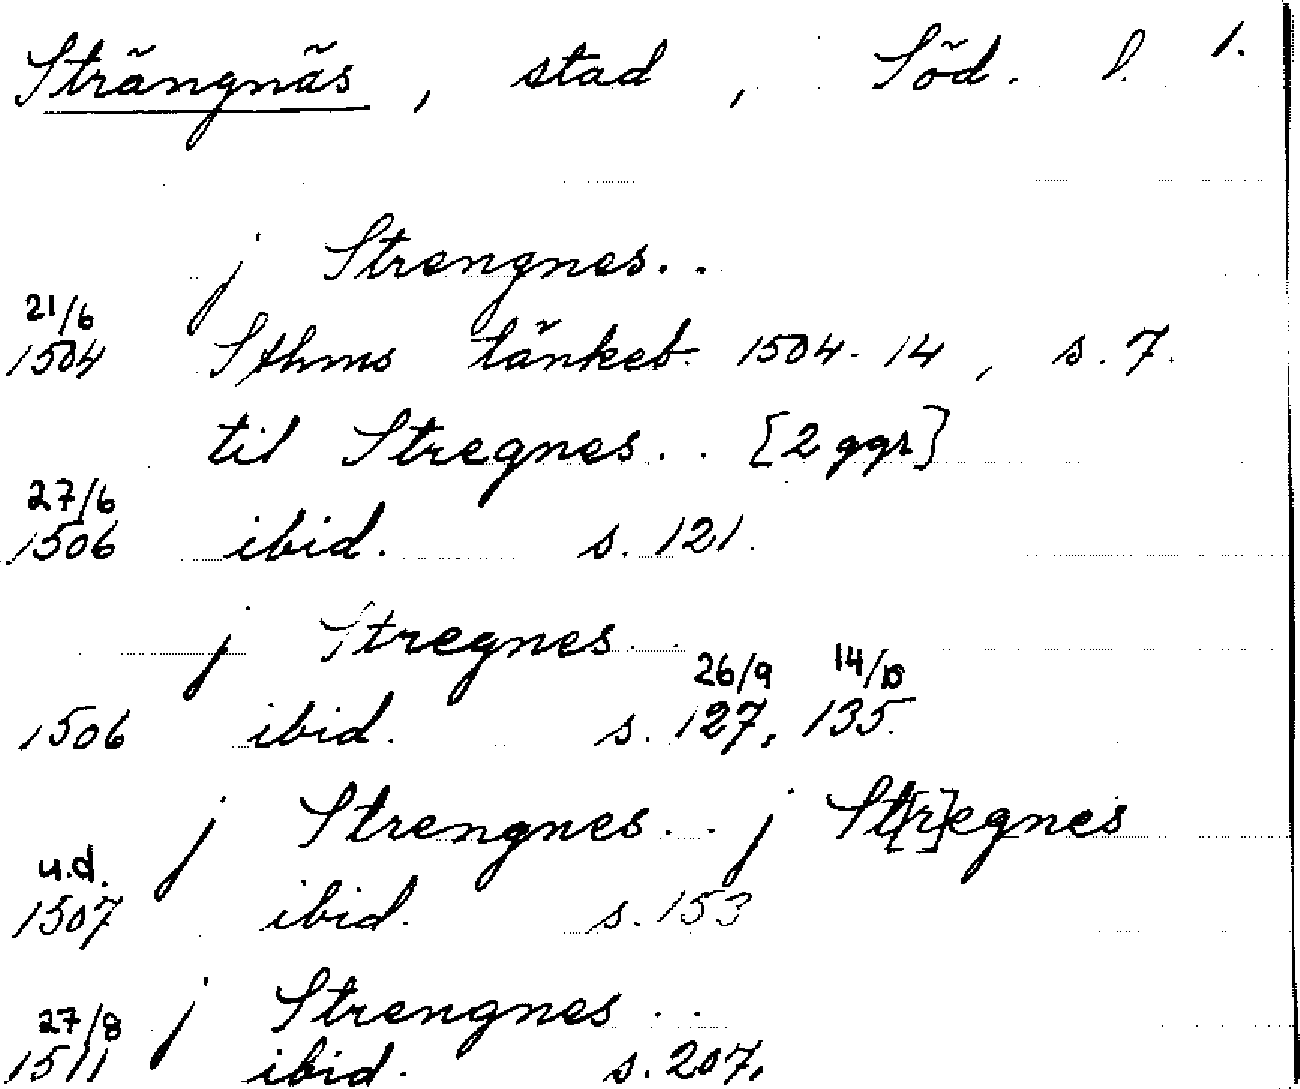 Strängnäs, stad, Söd. l. 1.
j Strengnes..
21/6
1504 Sthms tänkeb. 1504-14, s. 7.
til Stregnes.. [2 ggr]
27/6
1506 ibid. s. 121.
j Stregnes..
26/9 14/10
1506 ibid. s. 127, 135.
j Strengnes.. j St[r]egnes
u.d.
1507 ibid. s. 153
j Strengnes..
27/8
1511 ibid. s. 207.